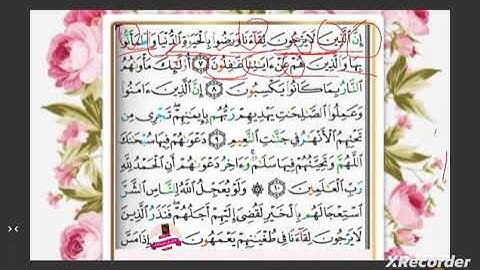 إِنَّ ٱلَّذِينَ لَا يَرْجُونَ لِقَآءَنَا وَرَضُوا۟ بِٱلْحَيَوٰةِ ٱلدُّنْيَا وَٱطْمَأَنُّوا۟
بِهَا وَٱلَّذِينَ هُمْ عَنْ ءَايَٰتِنَا غَٰفِلُونَ ٧ أُو۟لَٰٓئِكَ مَأْوَىٰهُمُ
ٱلنَّارُ بِمَا كَانُوا۟ يَكْسِبُونَ ٨ إِنَّ ٱلَّذِينَ ءَامَنُوا۟
وَعَمِلُوا۟ ٱلصَّٰلِحَٰتِ يَهْدِيهِمْ رَبُّهُم بِإِيمَٰنِهِمْ تَجْرِى مِن
تَحْتِهِمُ ٱلْأَنْهَٰرُ فِى جَنَّٰتِ ٱلنَّعِيمِ ٩ دَعْوَىٰهُمْ فِيهَا سُبْحَٰنَكَ
ٱللَّهُمَّ وَتَحِيَّتُهُمْ فِيهَا سَلَٰمٌ وَءَاخِرُ دَعْوَىٰهُمْ أَنِ ٱلْحَمْدُ لِلَّهِ
رَبِّ ٱلْعَٰلَمِينَ ١٠ وَلَوْ يُعَجِّلُ ٱللَّهُ لِلنَّاسِ ٱلشَّرَّ
ٱسْتِعْجَالَهُم بِٱلْخَيْرِ لَقُضِىَ إِلَيْهِمْ أَجَلُهُمْ فَنَذَرُ ٱلَّذِينَ
لَا يَرْجُونَ لِقَآءَنَا فِى طُغْيَٰنِهِمْ يَعْمَهُونَ ١١ وَإِذَا مَسَّ
XRecorder